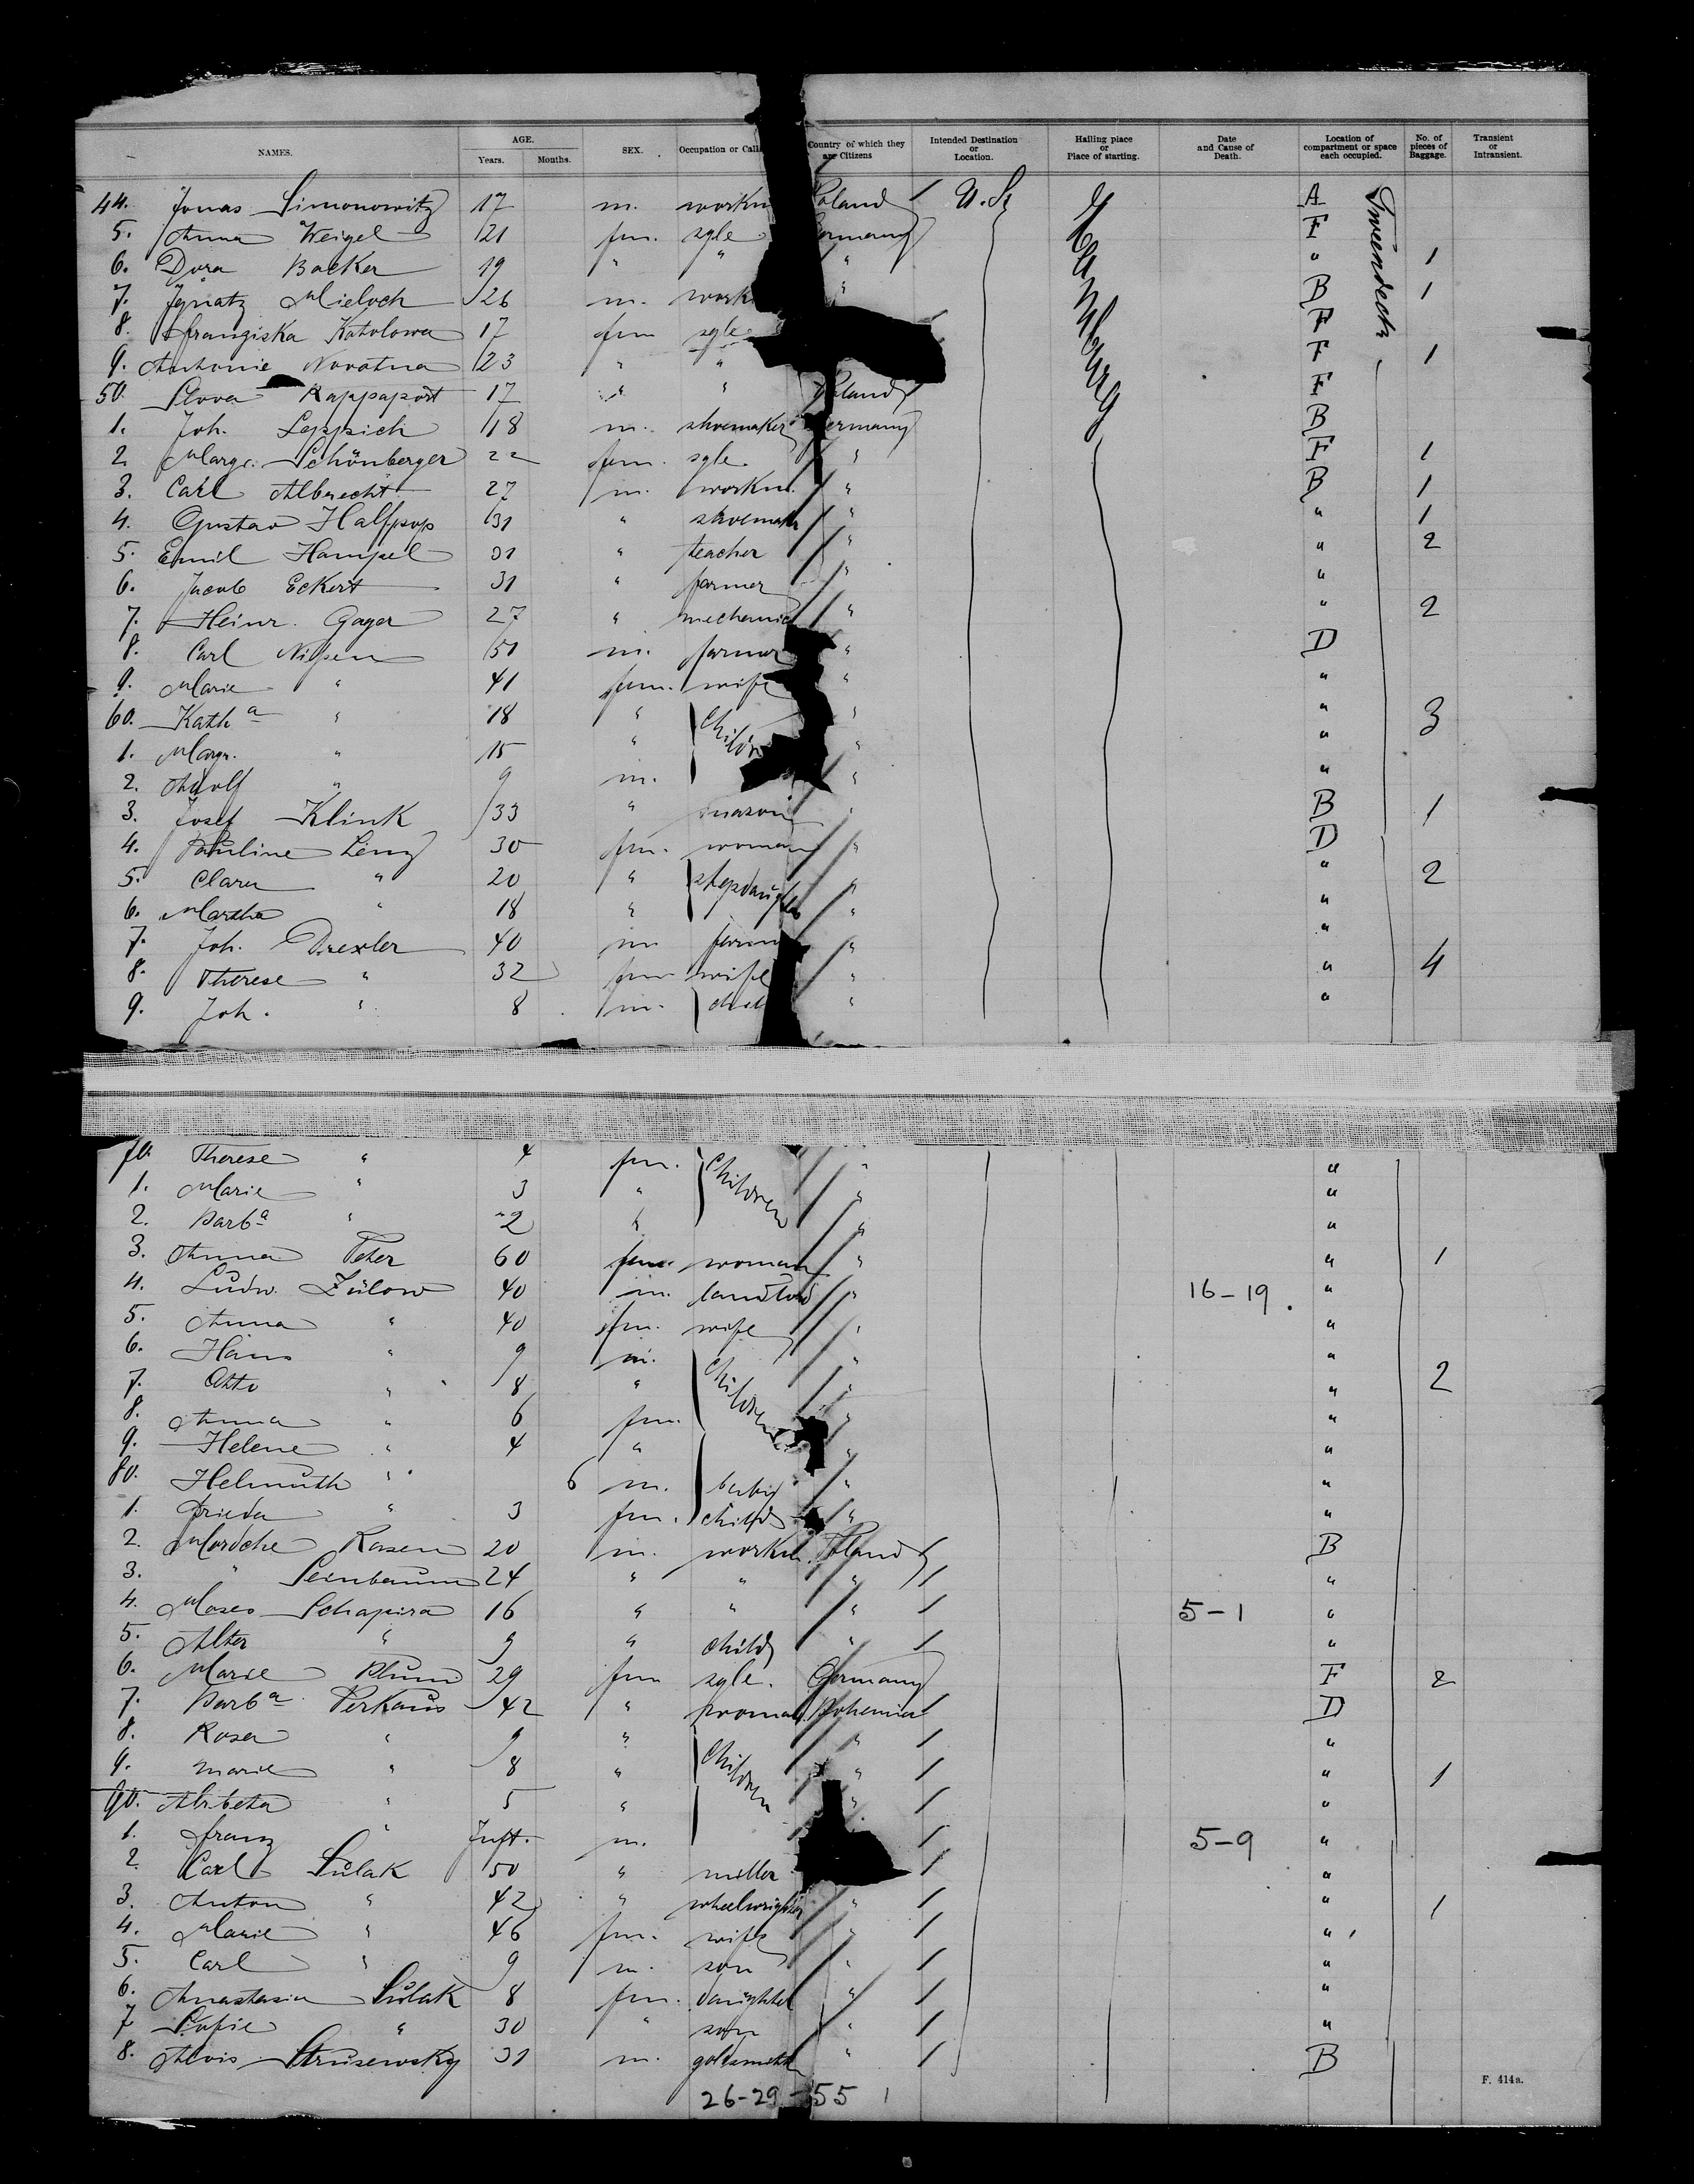 NAMES. AGE. Years. Months. SEX. Occupation or Calli Country of which they are Citizens Intended Destination or Location. Hailing place or Place of starting. Date and Cause of Death. Location of compartment or space each occupied. No. of pieces of Baggage. Transient or Intransient.
44. Jonas Simonowitz 17 m. workm Poland U.S. Hamburg A Tweendeck
5. Anna Weigel 21 fm. sgle Germany F
6. Dora Backer 19 " " " " 1
7. Ignatz Mieloch 26 m. work " B 1
8. Franziska Katolowa 17 fm sgle F
9. Antonie Novotna 23 " " F 1
50. Slova Rappaport 17 " " Poland F
1. Joh. Leppich 18 m. shoemaker Germany B
2. Margr. Schönberger 22 fm. sgle " F 1
3. Carl Albrecht 27 m. workm. " B 1
4. Gustav Halfpop 31 " shoemaker " " 1
5. Emil Hampel 31 " teacher " " 2
6. Jacob Eckert 31 " farmer " "
7. Heinr. Gager 27 " mechanic " " 2
8. Carl Nissen 51 m. farmer " D
9. Marie " 41 fm. wife " "
60. Katha " 18 " Children " " 3
1. Margr. " 15 " " "
2. Adolf " 9 m. " "
3. Josef Klink 33 " mason " B 1
4. Pauline Lenz 30 fm. woman " D
5. Clara " 20 " stepdaughter " " 2
6. Martha " 18 " " "
7. Joh. Drexler 40 m farm " "
8. Therese " 32 fm wife " " 4
9. Joh. " 8 m. " "
70. Therese " 4 fm. Children " "
1. Marie " 3 " " "
2. Barba " 2 " " "
3. Anna Peter 60 fm. woman " " 1
4. Ludw. Zülow 40 m. landlord " 16-19. "
5. Anna " 40 fm. wife " "
6. Hans " 9 m. Children " "
7. Otto " 8 " " " 2
8. Anna " 6 fm. " "
9. Helene " 4 " " "
80. Helmuth " 6 m. baby " "
1. Frieda " 3 fm. child " "
2. Mordche Rosen 20 m. workm. Poland B
3. " Seinbaum 24 " " " "
4. Moses Schapira 16 " " " 5-1 "
5. Alter " 9 " child " "
6. Marie Blum 29 fm sgle. Germany F 2
7. Barba Perkaus 42 " woman Bohemia D
8. Rosa " 9 " Children " "
9. Marie " 8 " " " 1
90. Alzbeta " 5 " " "
1. Franz " Inft. m. 5-9 "
2. Carl Sulak 50 " miller "
3. Anton " 42 " wheelwrighter " " 1
4. Marie " 46 fm. wife " "
5. Carl " 9 m. son " "
6. Anastasia Sulak 8 fm. daughter " "
7 Sofie " 30 " son " "
8. Alois Strusewsky 31 m. goldsmith " B
26-29-55 1
F. 414a.